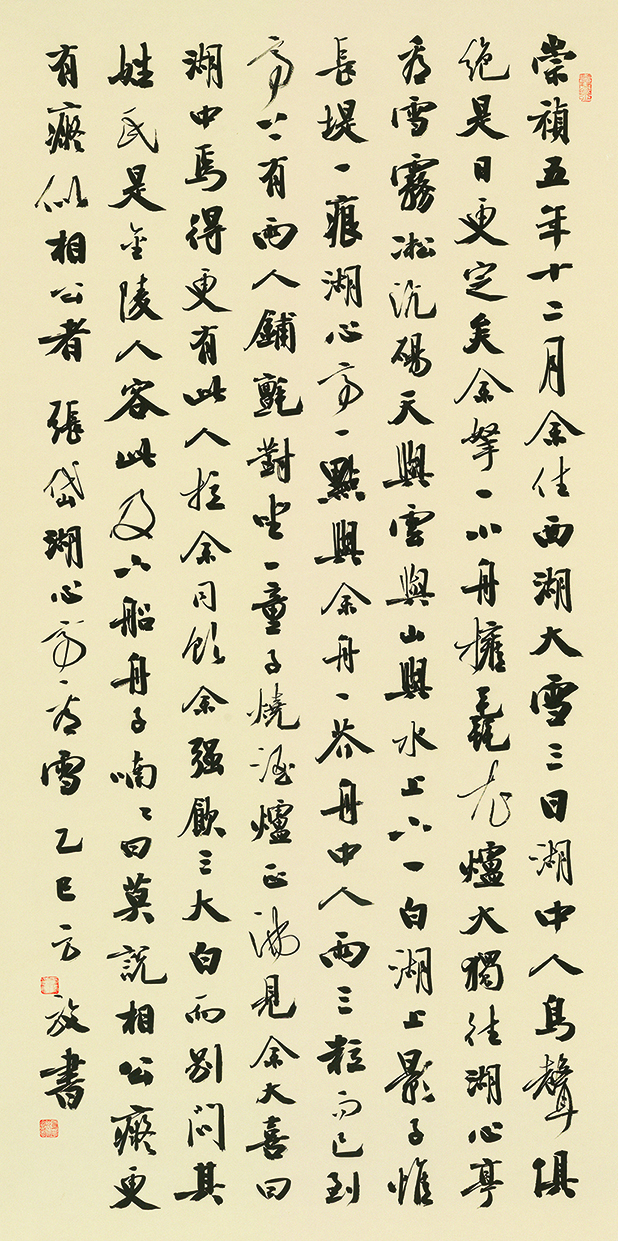 崇禎五年十二月余住西湖大雪三日湖中人鳥聲俱
絶是日更定矣余拏一小舟擁毳衣爐火獨往湖心亭
看雪霧凇沆碭天與雲與山與水上下一白湖上影子惟
長堤一痕湖心亭一點與余舟一芥舟中人兩三粒而已到
亭上有兩人鋪氈對坐一童子燒酒爐正沸見余大喜曰
湖中焉得更有此人拉余同飲余强飲三大白而別問其
姓氏是金陵人客此及下船舟子喃〻曰莫說相公癡更
有癡似相公者 張岱湖心亭看雪 乙巳方放書